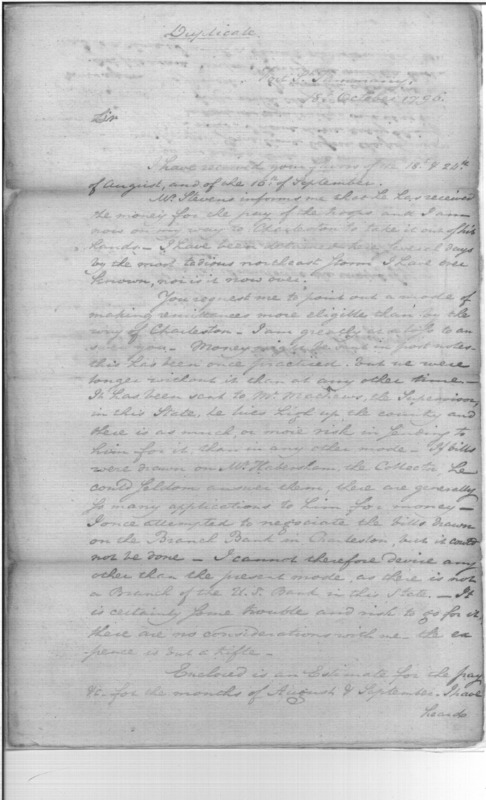 Duplicate
Fort St. Tammany,
15th October 1796.
Sir
I have received your favors of the 18th & 24th
of August, and of the 16th of September.
Mr. Stevens informs me that he has received
the money for the pay of the troops and I am
now on my way to Charleston to take it out of his
hands - I have been detained here several days
by the most tedious northeast storm I have ever
known, nor is it now over.
You request me to point out a mode of
making remittances more eligible than by the
way of Charleston - I am greatly at a loss to an
swer you - Money might be sent in post notes -
this has been once practiced, but we were
longer without it than at any other time -
It has been sent to Mr. Mathews, the Supervisor,
in this State, he lives high up the country and
there is as much, or more risk in sending to
him for it, than in any other mode - If bills
were drawn on Mr. Habersham, the Collector he
could seldom answer them, there are generally
so many applications to him for money -
I once attempted to negociate the bills drawn
on the Branch Bank in Charleston, but it could
not be done - I cannot therefore devise any
other than the present mode, as there is not
a Branch of the U.S. Bank in this State. - It
is certainly some trouble and risk to go for it,
there are no considerations with me the ex
pence is but a trifle -
Enclosed is an Estimate for the pay
&c. for the months of August & September. I have
heard